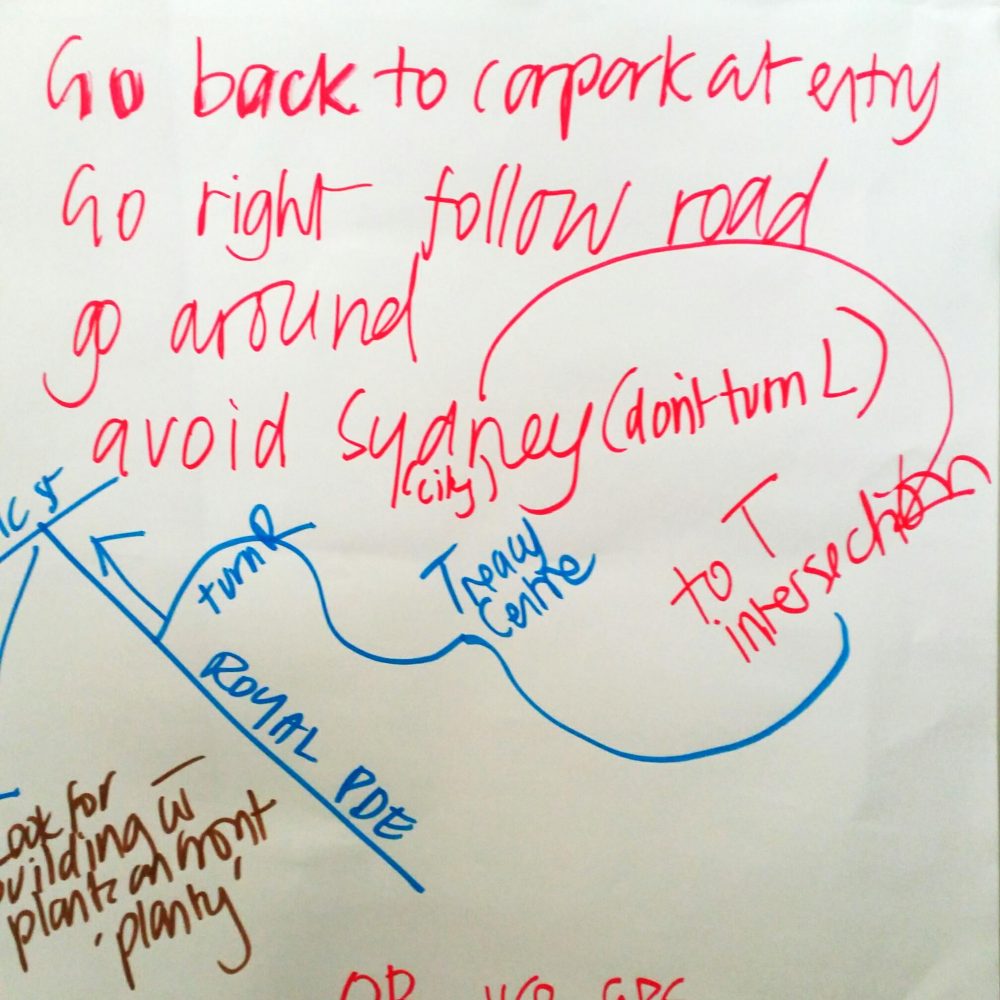 Go back to carpark at entry
Go right follow road
go around
avoid Sydney (don't turn L)
(city)
to T
intersection
turn R
Treacy
Centre
ROYAL PDE
Look for
building w
plants on front
'planty'
OR use GPS